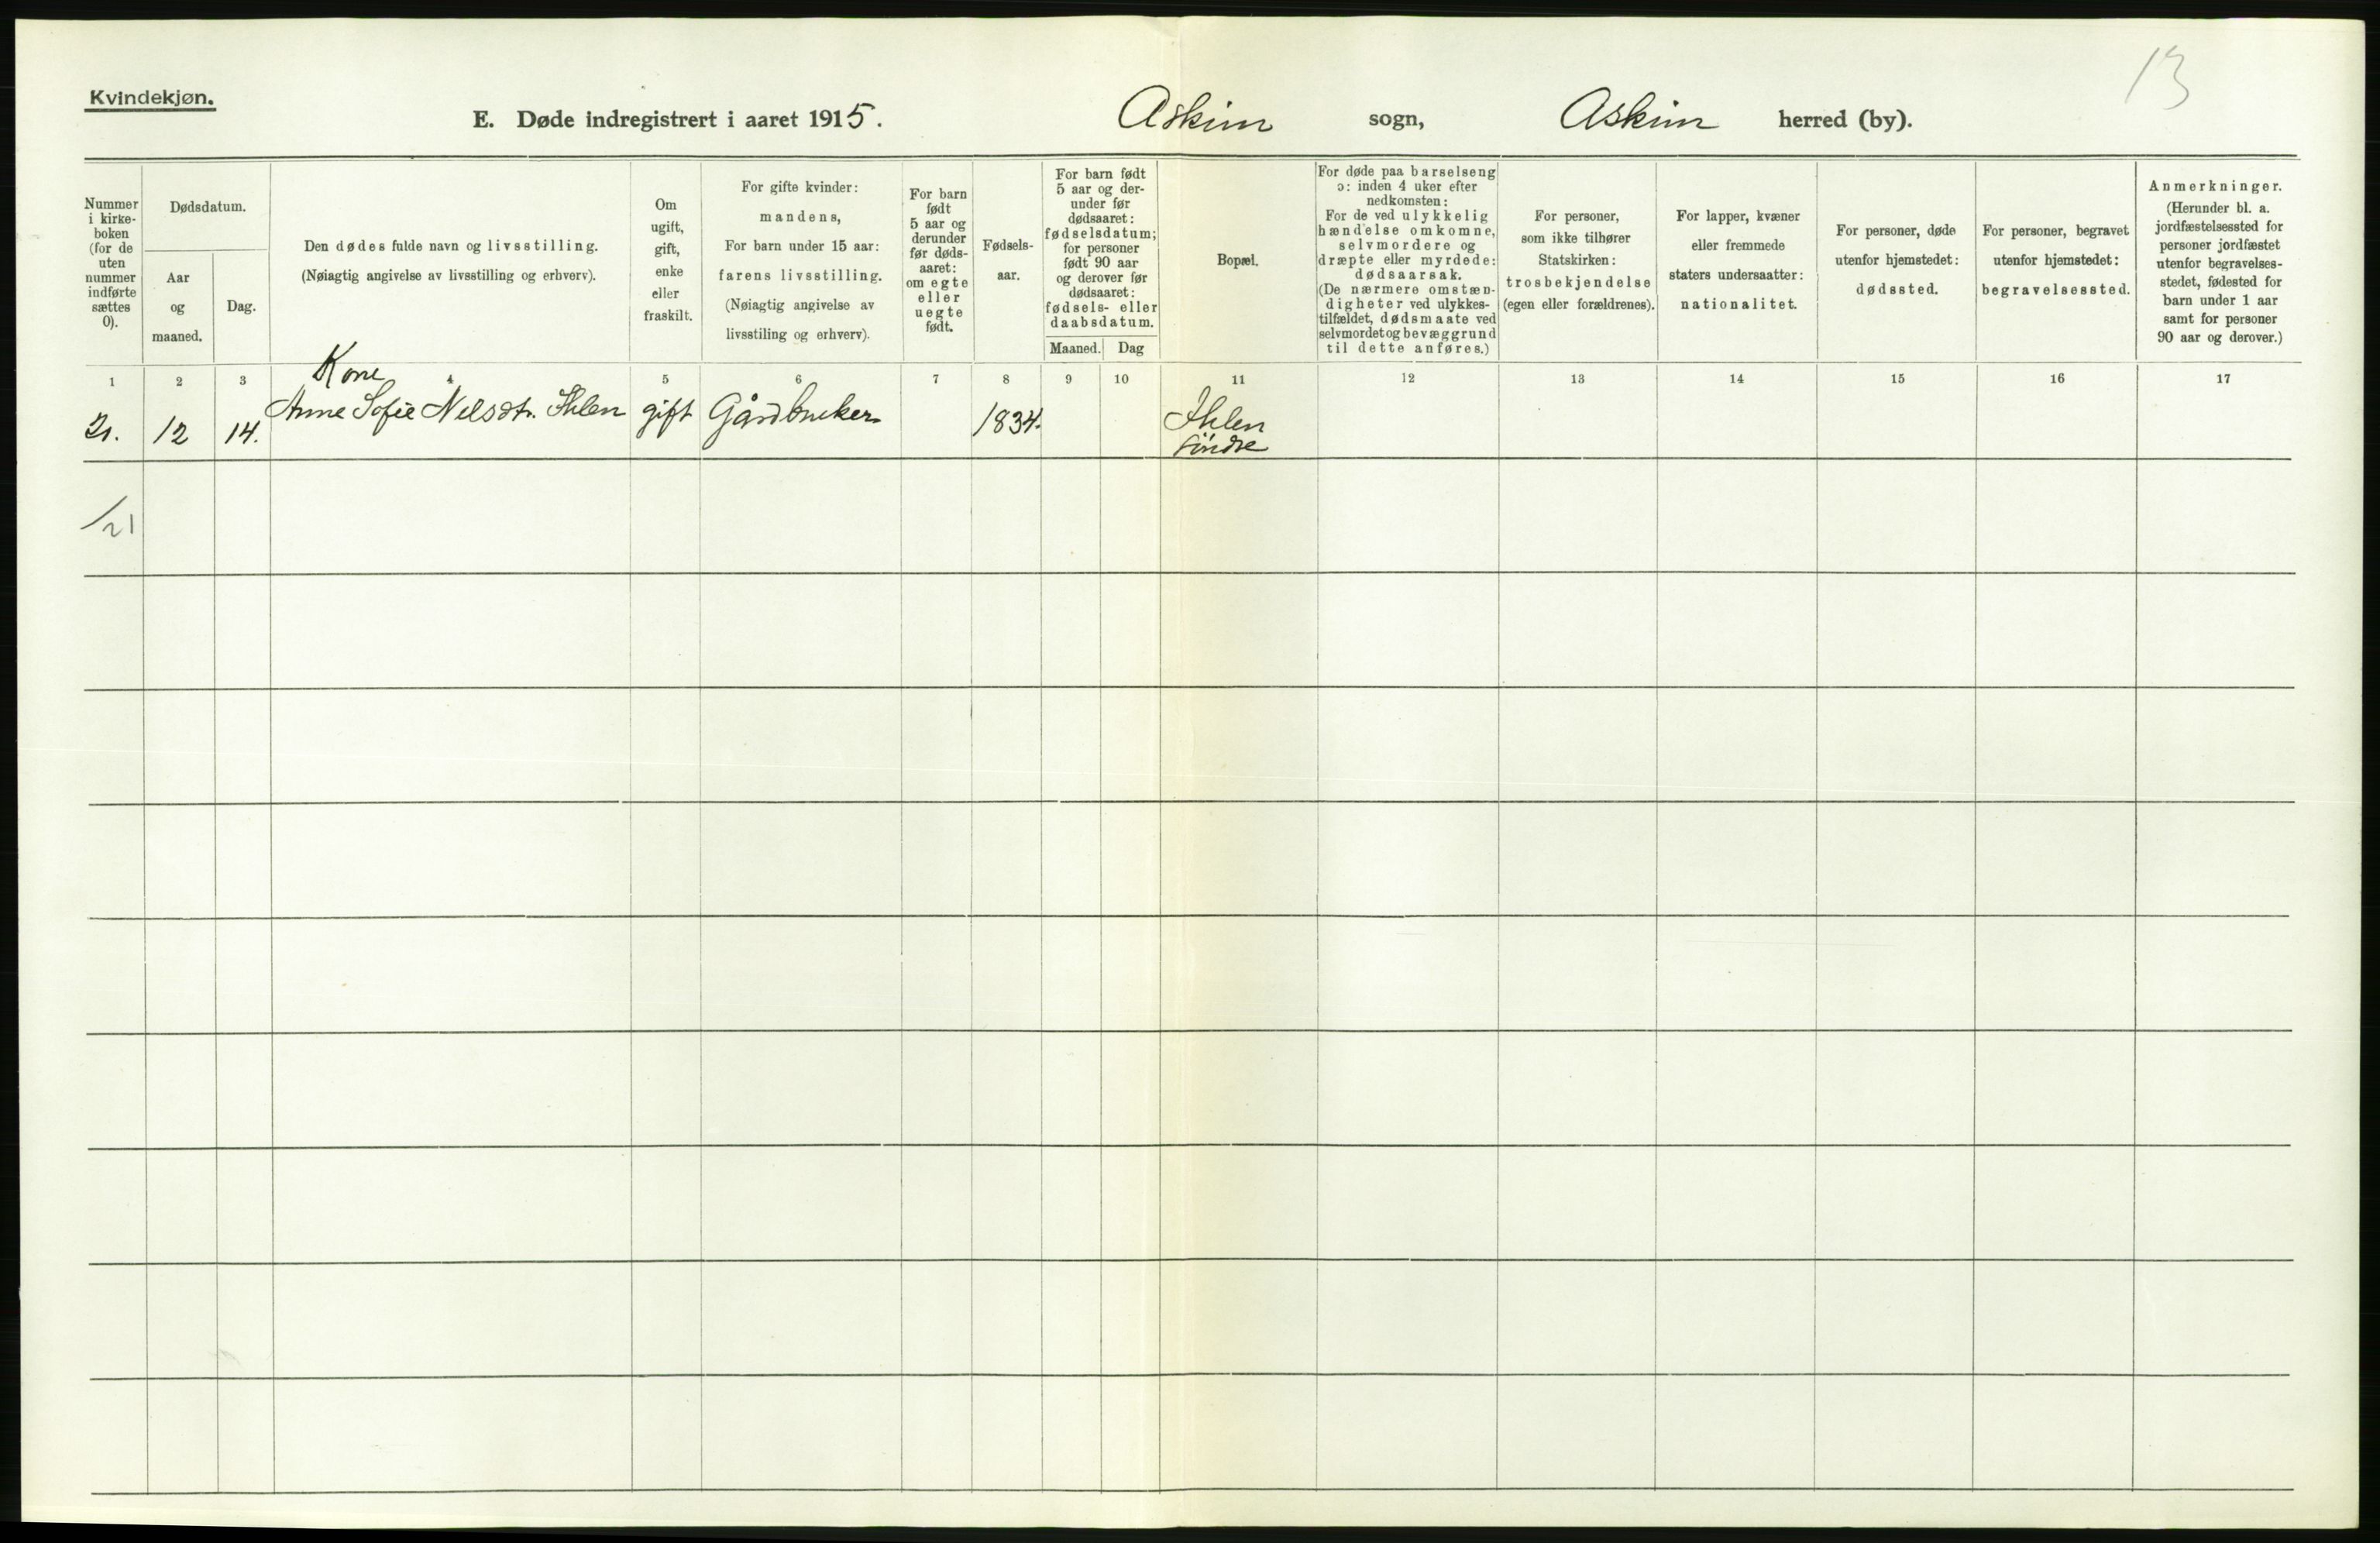 13
Kvindekjøn.
E. Døde indregistrert i aaret 1915. Askim sogn, Askim herred (by).
Nummer
i kirke-
boken
(for de
uten
nummer
indførte
sættes
0).
Dødsdatum.
Aar
og
maaned.
Dag.
Den dødes fulde navn og livsstilling.
(Nøiagtig angivelse av livsstilling og erhverv).
Om
ugift,
gift,
enke
eller
fraskilt.
For gifte kvinder:
mandens,
For barn under 15 aar:
farens livsstilling.
(Nøiagtig angivelse av
livsstiling og erhverv).
For barn
født
5 aar og
derunder
før døds-
aaret:
om egte
eller
uegte
født.
Fødsels-
aar.
For barn født
5 aar og der-
under før
dødsaaret:
fødselsdatum;
for personer
født 90 aar
og derover før
dødsaaret:
fødsels- eller
daabsdatum.
Maaned. Dag
Bopæl.
For døde paa barselseng
ɔ: inden 4 uker efter
nedkomsten:
For de ved ulykkelig
hændelse omkomne,
selvmordere og
dræpte eller myrdede:
dødsaarsak.
(De nærmere omstæn-
digheter ved ulykkes-
tilfældet, dødsmaate ved
selvmordet og bevæggrund
til dette anføres.)
For personer,
som ikke tilhører
Statskirken:
trosbekjendelse
(egen eller forældrenes).
For lapper, kvæner
eller fremmede
staters undersaatter:
nationalitet.
For personer, døde
utenfor hjemstedet:
dødssted.
For personer, begravet
utenfor hjemstedet:
begravelsessted.
Anmerkninger.
(Herunder bl. a.
jordfæstelsessted for
personer jordfæstet
utenfor begravelses-
stedet, fødested for
barn under 1 aar
samt for personer
90 aar og derover.)
1 2 3 4 5 6 7 8 9 10 11 12 13 14 15 16 17
Kone
21. 12 14. Anne Sofie Nilsdtr. Ihlen gift Gårdbruker 1834. Ihlen
søndre
/21